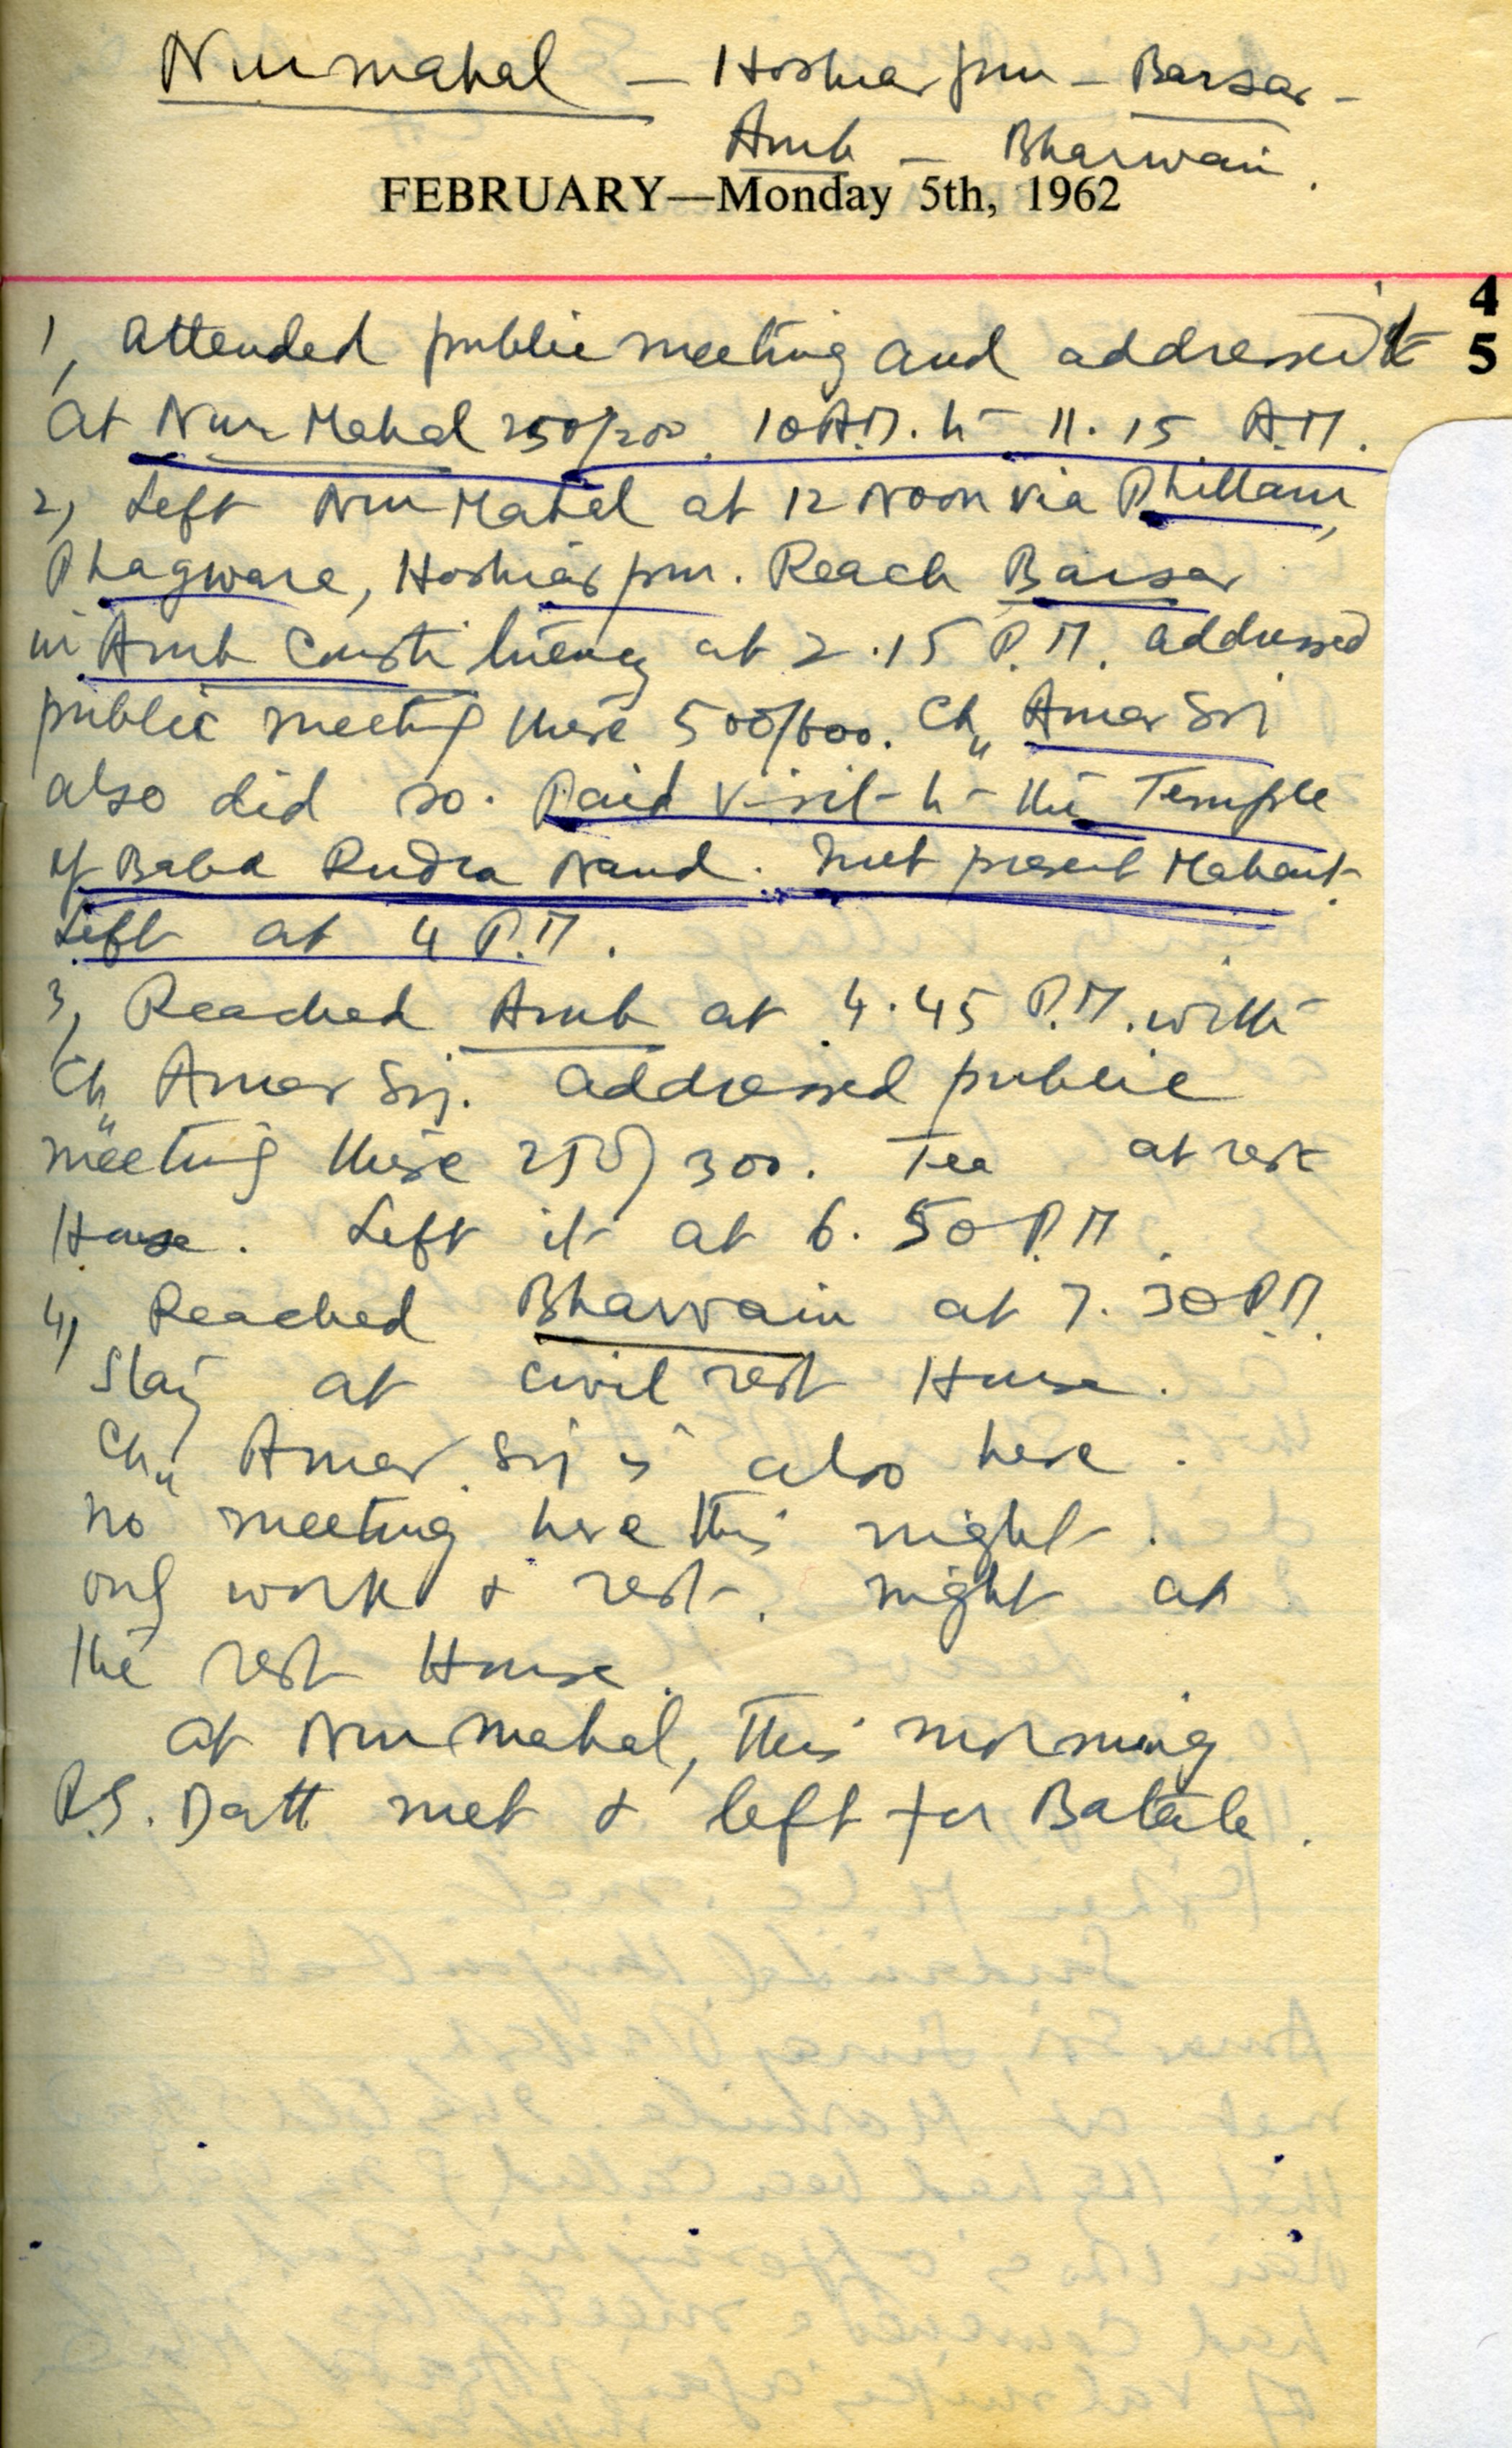 Nurmahal — Hoshiarpur — Barsar —
Amb — Bharwain.
FEBRUARY—Monday 5th, 1962
4
5
1, Attended public meeting and addressed it
at Nur Mahal 250/200. 10 A.M. to 11.15 A.M.
2, Left Nur Mahal at 12 Noon via Phillaur,
Phagwara, Hoshiarpur. Reach Barsar
in Amb Constituency at 2.15 P.M. addressed
public meeting there 500/600. Ch" Amar Sij
also did so. Paid visit to the Temple
of Baba Rudra Nand. met present Mahant.
Left at 4 P.M.
3, Reached Amb at 4.45 P.M. with
Ch" Amar Sij. addressed public
meeting there 250/300. Tea at rest
House. Left it at 6.50 P.M.
4, Reached Bharwain at 7.30 P.M.
Stay at civil rest House.
Ch" Amar Sij is also here.
no meeting here this night.
only work & rest. night at
the rest House.
at Nurmahal, this morning
P.S. Datt met & left for Batala.